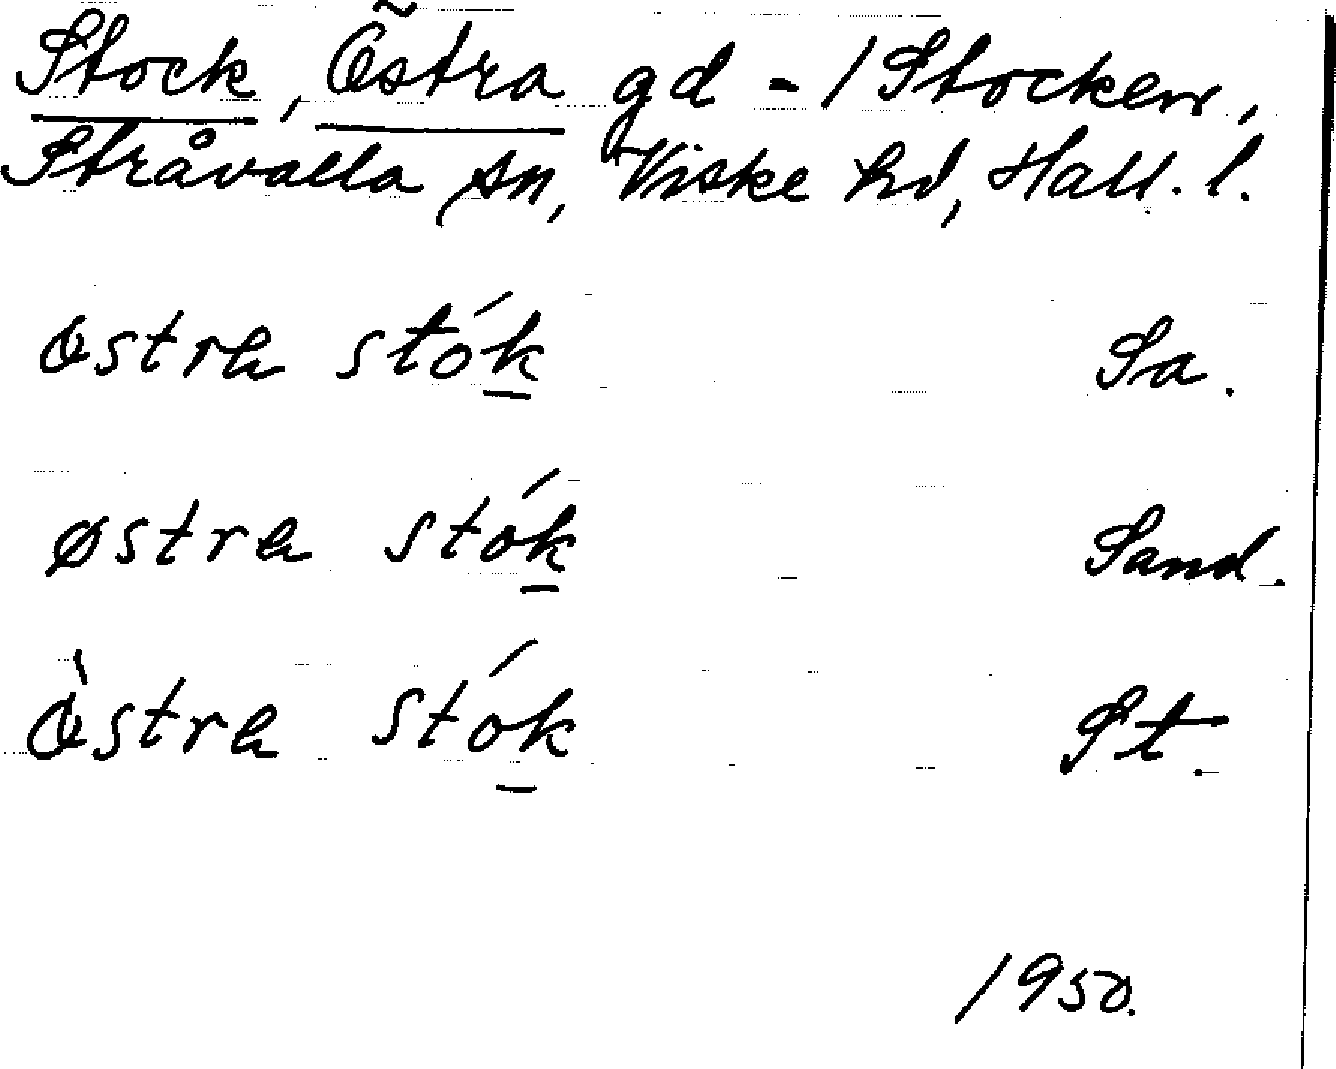 Stock, Östra gd - 1 Stocken,
Stråvalla sn, Viske hd, Hall. l.
östra stók Sa.
østra stók Sand.
östra stók St.
1950.